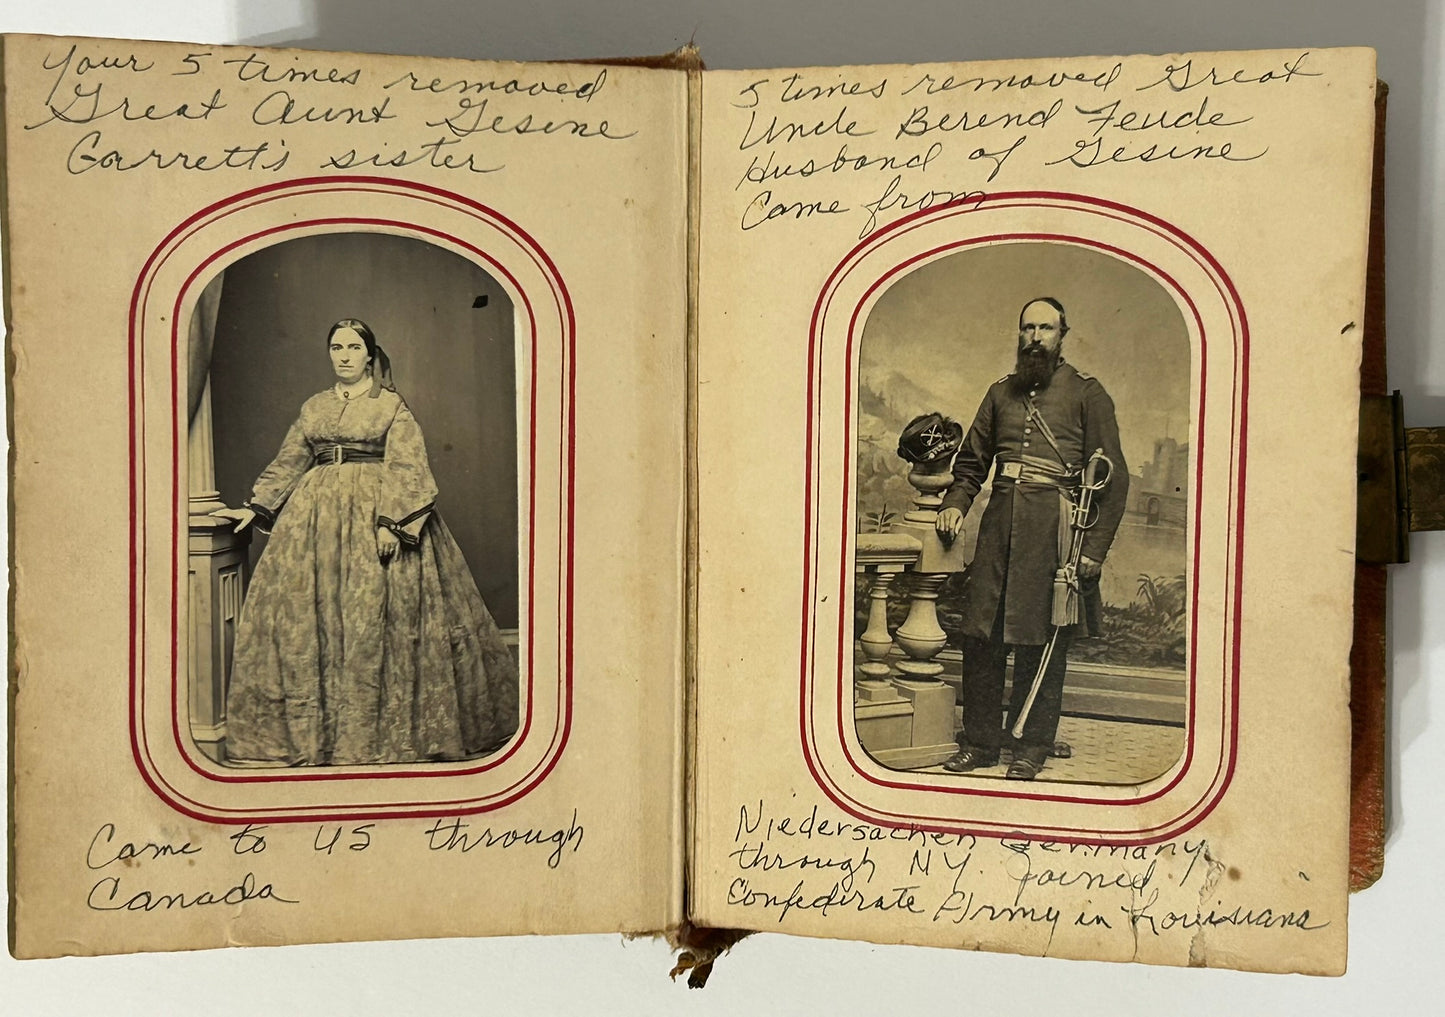 Your 5 times removed
Great Aunt Gesine
Garrett's sister
Came to US through
Canada
5 times removed Great
Uncle Berend Feude
Husband of Gesine
Came from
Niedersachen Germany
through NY. joined
Confedirate Army in Louisiana